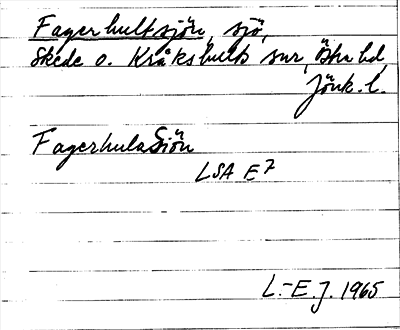 Fagerhultsjön, sjö,
Skede o. Kråkshults snr, Östra hd,
Jönk. l.
Fagerhulasiön
LSA E7
L.-E. J. 1965